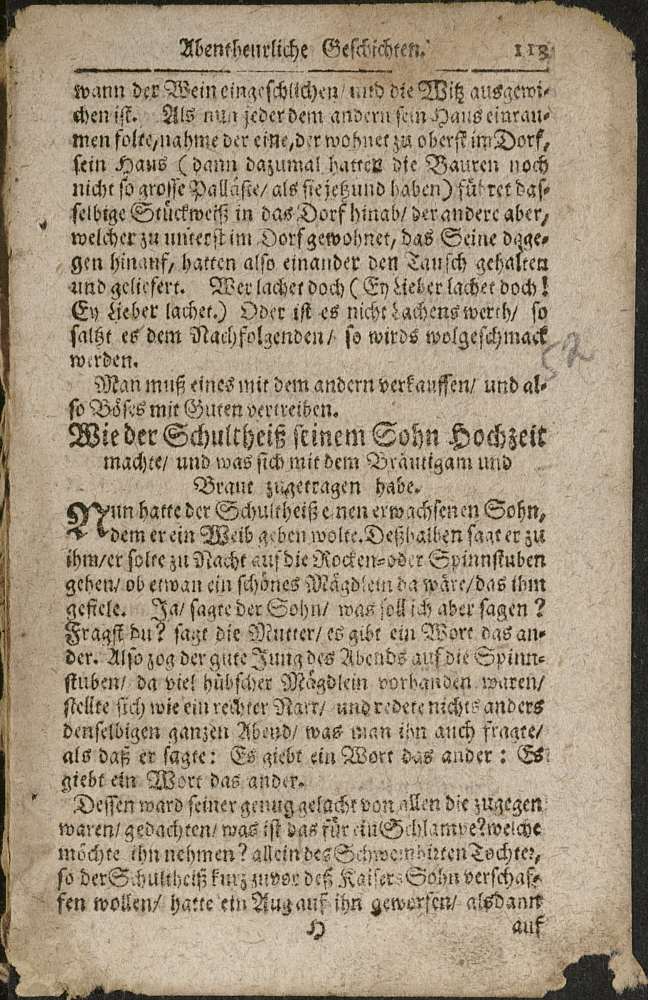 Abentheurliche Geschichten. 113
wann der Wein eingeschlichen/ und die Witz ausgewi-
chen ist. Als nun jeder dem andern sein Haus einrau-
men solte, nahme der eine, der wohnet zu oberst im Dorf,
sein Haus (dann dazumal hatten die Bauren noch
nicht so grosse Palläste/ als sie jetzund haben) führet das-
selbige Stückweiß in das Dorf hinab/ der andere aber,
welcher zu unterst im Dorf gewohnet, das Seine dage-
gen hinauf, hatten also einander den Tausch gehalten
und geliefert. Wer lachet doch (Ey Lieber lachet doch!
Ey Lieber lachet.) Oder ist es nicht Lachens werth/ so
saltzt es dem Nachfolgenden/ so wirds wolgeschmack
werden.
52
Man muß eines mit dem andern verkauffen/ und al-
so Böses mit Guten vertreiben.
Wie der Schultheiß seinem Sohn Hochzeit
machte/ und was sich mit dem Bräutigam und
Braut zugetragen habe.
Nun hatte der Schultheiß einen erwachsenen Sohn,
dem er ein Weib geben wolte. Deßhalben sagt er zu
ihm/ er solte zu Nacht auf die Rocken- oder Spinnstuben
gehen/ ob etwan ein schönes Mägdlein da wäre/ das ihm
gefiele. Ja/ sagte der Sohn/ was soll ich aber sagen?
Fragst du? sagt die Mutter/ es gibt ein Wort das an-
der. Also zog der gute Jung des Abends auf die Spinn-
stuben/ da viel hübscher Mägdlein vorhanden waren/
stellte sich wie ein rechter Narr/ und redete nichts anders
denselbigen ganzen Abend/ was man ihn auch fragte/
als daß er sagte: Es giebt ein Wort das ander: Es
giebt ein Wort das ander.
Dessen ward seiner genug gelacht von allen die zugegen
waren/ gedachten/ was ist das für ein Schlampe? welche
möchte ihn nehmen? allein des Schweinhirten Tochter,
so der Schultheiß kurz zuvor deß Kaisers Sohn verschaf-
fen wollen/ hatte ein Aug auf ihn geworfen/ alsdann
H auf